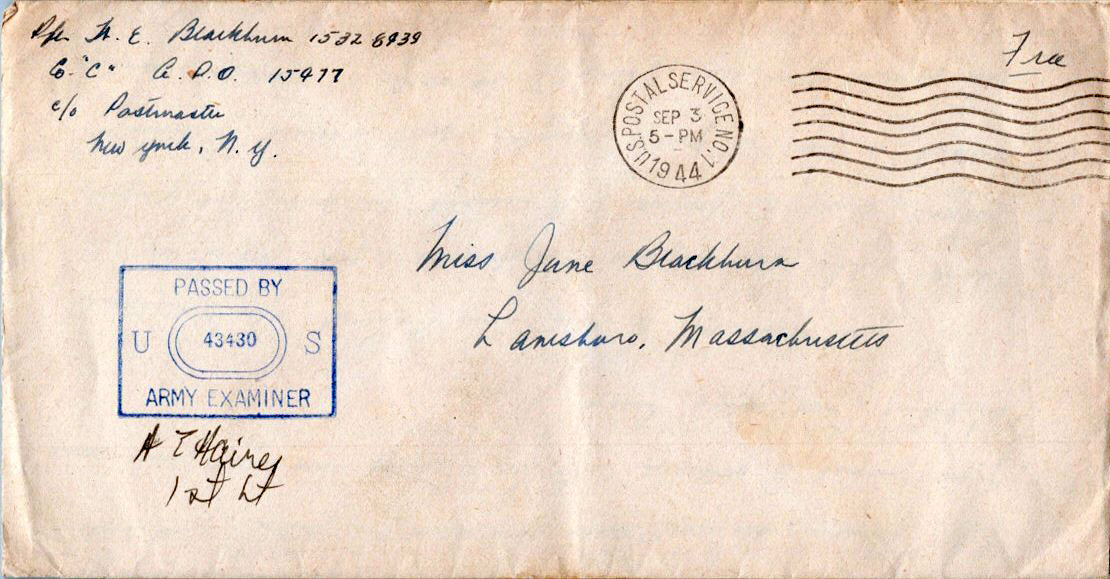 H. E. Blackburn 1532 8939
Co. "C" A.P.O. 15977
c/o Postmaster
New York, N.Y.
Free
U.S. POSTAL SERVICE NO. 1
SEP 3
5-PM
1944
Miss June Blackburn
Lanesboro, Massachusetts
PASSED BY
U 43430 S
ARMY EXAMINER
Haines
1st Lt